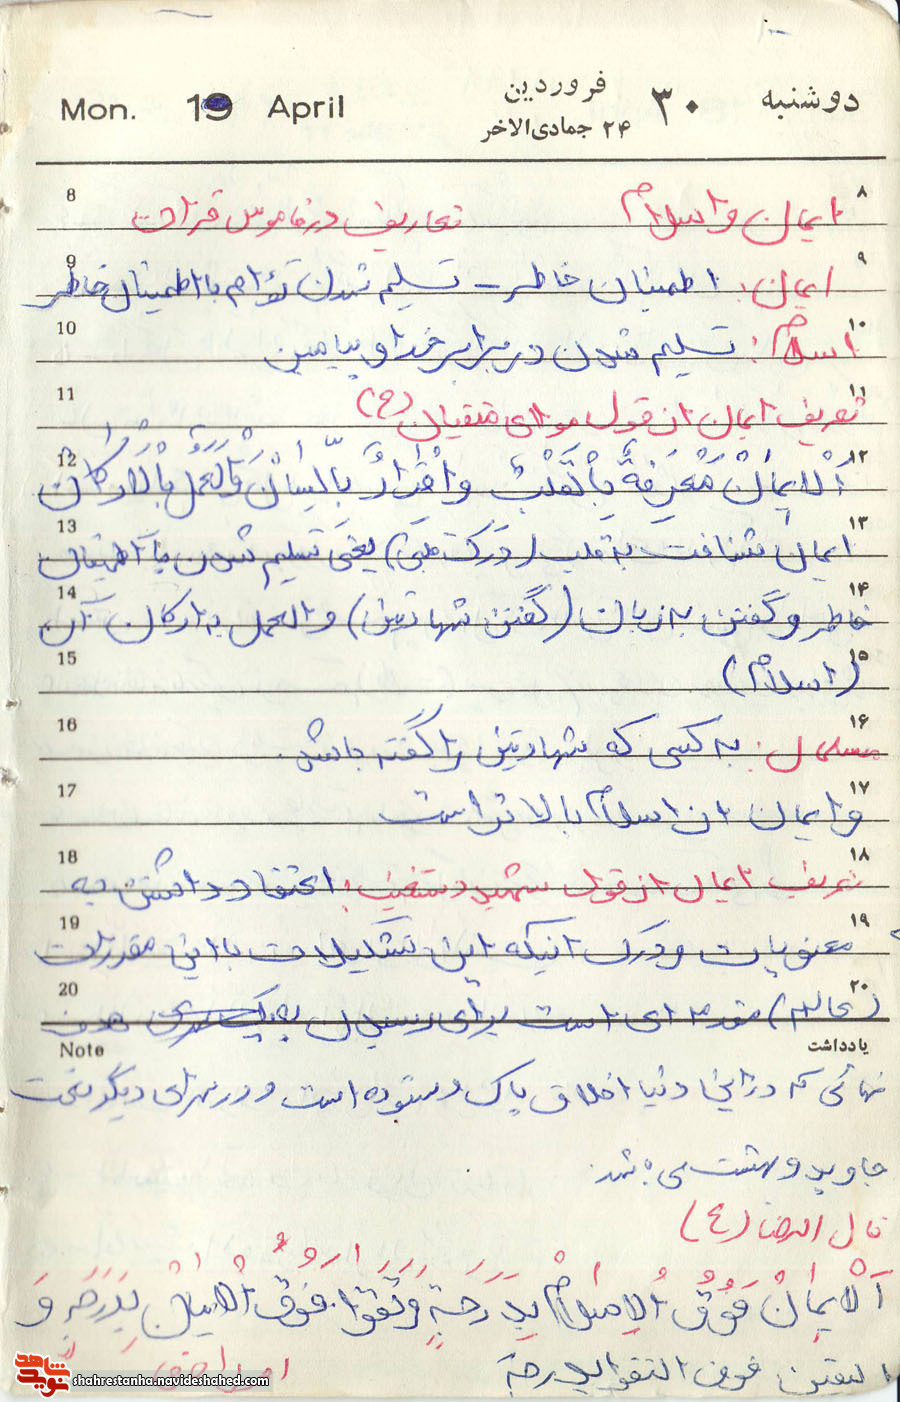 ۱۰۰
دوشنبه ۳۰ فروردین Mon. 19 April
۲۴ جمادی‌الاخر
۸ ایمان و اسلام تعاریف در قاموس قرآن 8
۹ ایمان: اطمینان خاطر - تسلیم شدن توأم با اطمینان خاطر 9
۱۰ اسلام: تسلیم شدن در برابر خدا و پیامبر 10
۱۱ تعریف ایمان از قول مولای متقیان (ع) 11
۱۲ اَلْایمانُ مَعْرِفَةٌ بِالْقَلْبِ وَ اِقْرارٌ بِاللِّسانِ وَالْعَمَلُ بِالْاَرْکانِ 12
۱۳ ایمان شناخت به قلب (درک قلبی) یعنی تسلیم شدن با اطمینان 13
۱۴ خاطر و گفتن به زبان (گفتن شهادتین) و العمل به ارکان آن 14
۱۵ (اسلام) 15
۱۶ مسلمان: به کسی که شهادتین را گفته باشد. 16
۱۷ و ایمان از اسلام بالاتر است 17
۱۸ تعریف ایمان از قول شهید دستغیب: اعتقاد داشتن به 18
۱۹ معنویات و درک اینکه این تشکیلات با این مقررات 19
۲۰ مقدمه ای است برای رسیدن به یک هدف 20
یادداشت Note
نهائی که در این دنیا اخلاق پاک و ستوده است و در سرای دیگر
جاوید و بهشت می باشد.
قال الرضا (ع)
اَلْایمانُ فَوْقَ الْاِسْلامِ بِدَرَجَةٍ وَ تَقْوا فَوْقَ الْایمانِ بِدَرَجَةٍ وَ
الیقین فوق التقوا بدرجة
شاهد
نوید
shahrestanha.navideshahed.com